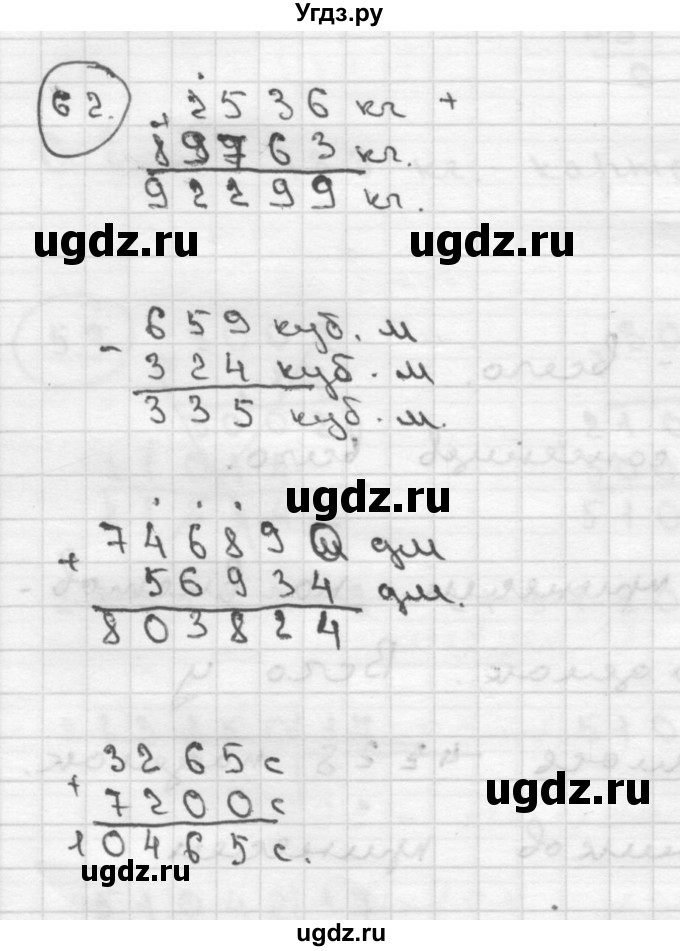 Угдз.ру
62.
2536 кг +
+
89763 кг.
92299 кг.
ugdz.ru ugdz.ru
659 куб. м
-
324 куб. м
335 куб. м.
ugdz.ru
74689 дм
+
56934 дм.
803824
ugdz.ru
3265 с
+
7200 с
10465 с.
ugdz.ru
ugdz.ru